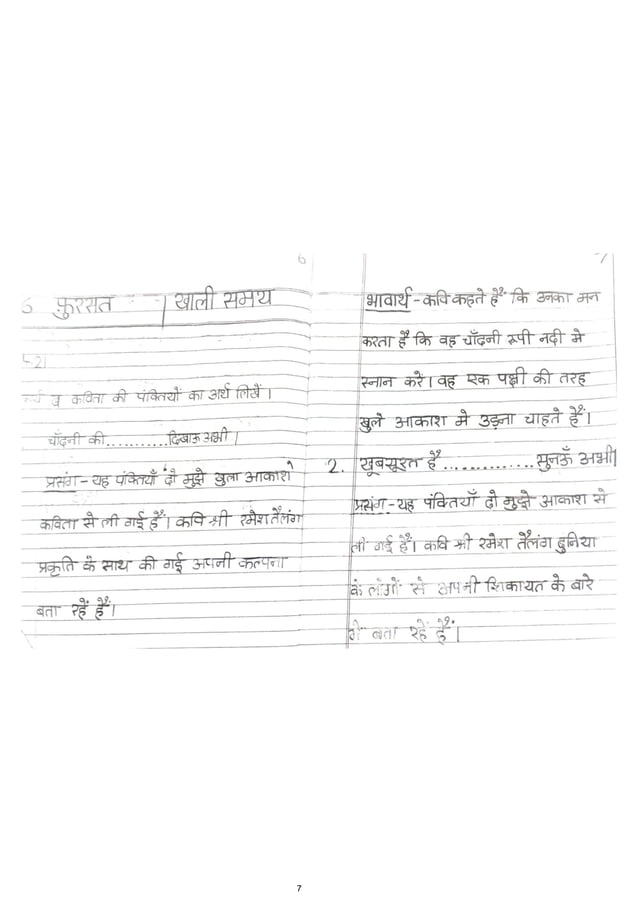 6
फुरसत | खाली समय
कविता की पंक्तियों का अर्थ लिखें।
चाँदनी की...........दिखाऊ अभी।
प्रसंग - यह पंक्तियाँ 'दो मुझे खुला आकाश'
कविता से ली गई हैं। कवि श्री रमेश तैलंग
प्रकृति के साथ की गई अपनी कल्पना
बता रहें हैं।
7
भावार्थ - कवि कहते हैं कि उनका मन
करता है कि वह चाँदनी रूपी नदी मे
स्नान करें। वह एक पक्षी की तरह
खुले आकाश मे उड़ना चाहते हैं।
2. खूबसूरत है ...............सुनऊँ अभी।
प्रसंग - यह पंक्तियाँ दो मुझे आकाश से
ली गई हैं। कवि श्री रमेश तैलंग दुनिया
के लोगों से अपनी शिकायत के बारे
में बता रहें हैं।
7